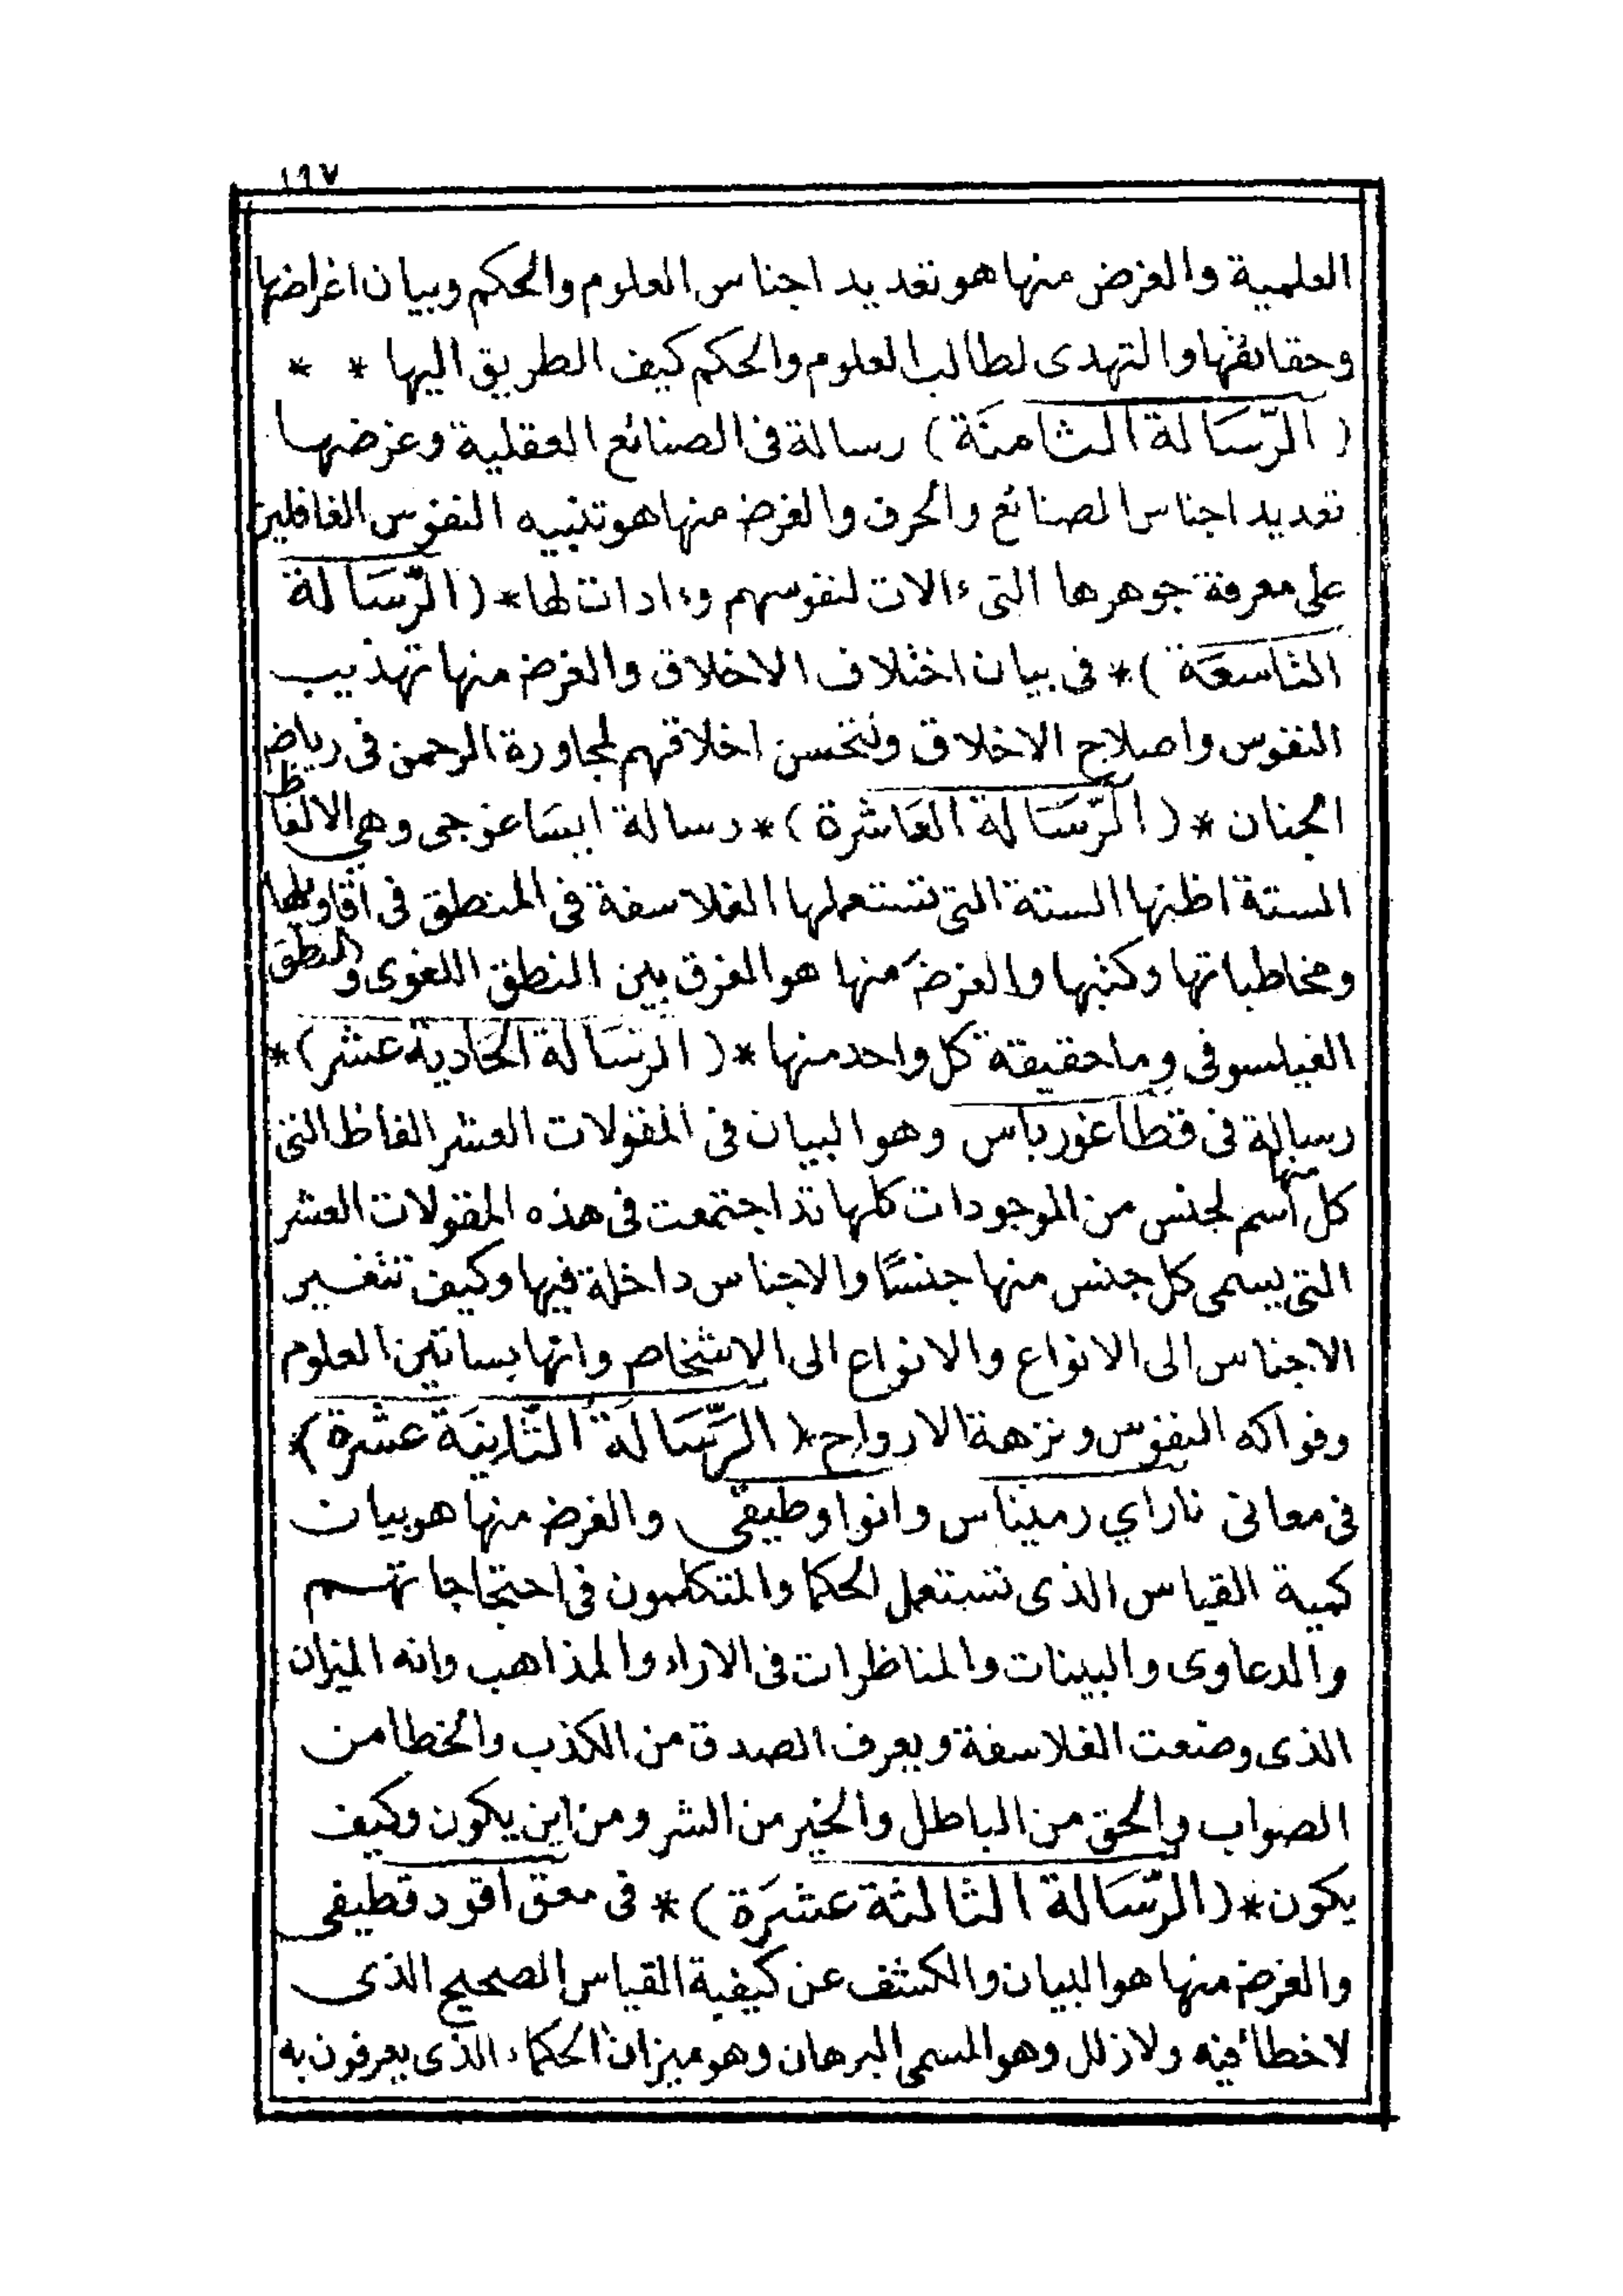 ١٦٧
العلمية والغرض منها هو تعديد اجناس العلوم والحكم وبيان اغراضها
وحقائقها والتهدى لطالب العلوم والحكم كيف الطريق اليها * *
( الرّسَالة الثامنَة ) رسالة فى الصنائع العقلية وغرضها
تعديد اجناس الصنائع والحرف والغرض منها هو تنبيه النفوس الغافلين
على معرفة جوهرها التى ءالات لنفوسهم وءادات لها * ( الرّسَالة
التاسعَة ) * فى بيان اختلاف الاخلاق والغرض منها تهذيب
النفوس واصلاح الاخلاق وتحسن اخلاقهم لمجاورة الرحمن فى رياض
الجنان * ( الرّسَالة العَاشرة ) * رسالة ايسَاغوجى وهي الالفاظ
الستة اظنها الستة التى تستعملها الفلاسفة فى المنطق فى اقاويلها
ومخاطباتها وكتبها والغرض منها هو الفرق بين النطق اللغوى والمنطق
الفيلسوفى وما حقيقة كل واحد منها * ( الرسَالة الحَادية عشر ) *
رسالة فى قطاغورياس وهو البيان فى المقولات العشر الفاظ التى
كل منها اسم لجنس من الموجودات كلها قد اجتمعت فى هذه المقولات العشر
التى يسمى كل جنس منها جنسًا والاجناس داخلة فيها وكيف تنفسير
الاجناس الى الانواع والانواع الى الاشخاص وانها بساتين العلوم
وفواكه النفوس ونزهة الارواح * ( الرّسَالَة الثّانيَة عشرة ) *
فى معانى ناراي رميناس وانواوطيقى والغرض منها هو بيان
كمية القياس الذى تستعمل الحكما والمتكلمون فى احتجاجاتهم
والدعاوى والبينات والمناظرات فى الاراء والمذاهب وانه الميزان
الذى وضعت الفلاسفة ويعرف الصدق من الكذب والخطا من
الصواب والحق من الباطل والخير من الشر ومن اين يكون وكيف
يكون * ( الرّسَالة الثالثة عشرَة ) * فى معنى اقودقطيقى
والغرض منها هو البيان والكشف عن كيفية القياس الصحيح الذى
لا خطأ فيه ولا زلل وهو المسمى البرهان وهو ميزان الحكماء الذى يعرفون به